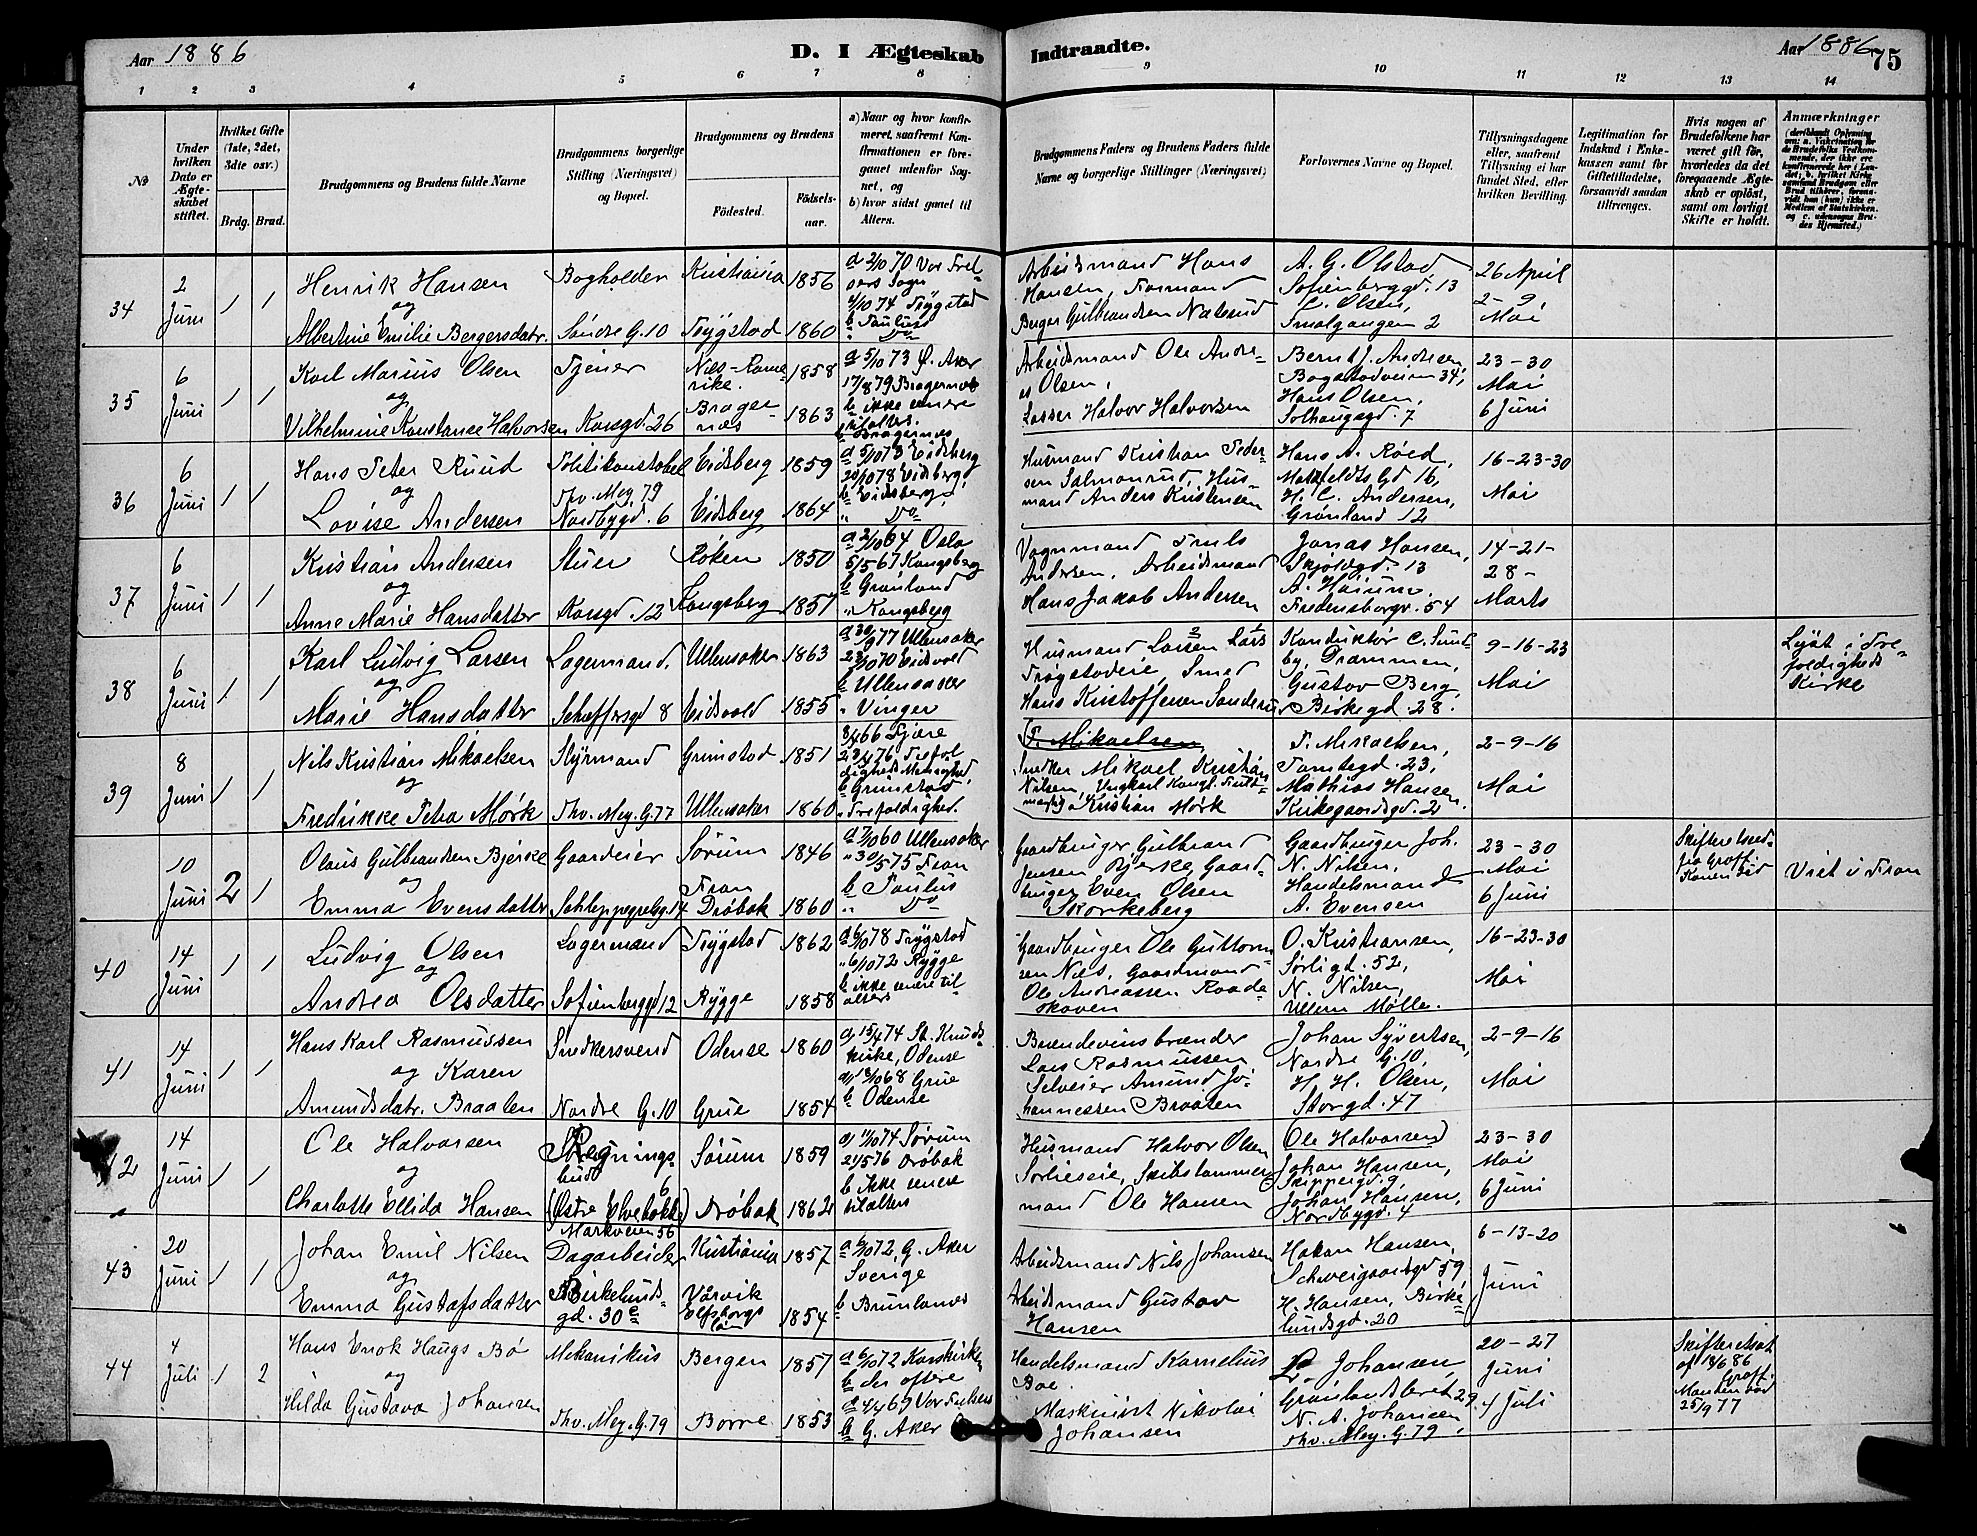 Aar 1886
D. I Ægteskab Indtraadte.
Aar 1886
75
1 2 3 4 5 6 7 8 9 10 11 12 13 14
№
Under hvilken Dato er Ægteskabet stiftet.
Hvilket Gifte (1ste, 2det, 3die osv.)
Brdg. Brud.
Brudgommens og Brudens fulde Navne
Brudgommens borgerlige Stilling (Næringsvei) og Bopæl.
Brudgommens og Brudens
Fødested.
Fødselsaar.
a) Naar og hvor konfirmeret, saafremt Konfirmationen er foregaaet udenfor Sognet, og
b) hvor sidst gaaet til Alters.
Brudgommens Faders og Brudens Faders fulde Navne og borgerlige Stillinger (Næringsvei)
Forlovernes Navne og Bopæl.
Tillysningsdagene eller, saafremt Tillysning ei har fundet Sted, efter hvilken Bevilling.
Legitimation for Indskud i Enkekassen samt for Giftetilladelse, forsaavidt saadan tiltrænges.
Hvis nogen af Brudefolkene har været gift før, hvorledes da det foregaaende Ægteskab er opløst, samt om lovligt Skifte er holdt.
Anmærkninger
34
2 Juni
1 1
Henrik Hansen
og
Albertine Emilie Bergersdatr.
Bogholder
Søndre G. 10
Kristiania 1856
Trygstad 1860
a 2/10 70 Vor Frelsers Sogn
4/10 74 Trygstad
b Paulus
" Do
Arbeidsmand Hans
Hansen, Formand
Berger Gulbrandsen Natsrud
A. G. Olstad,
Sofienberggd. 13
C. Olsen,
Smalgangen 2
26 April
2-9
Mai
35
6 Juni
1 1
Karl Marius Olsen
og
Vilhelmine Konstanse Halvorsen
Tjener
Korsgd. 26
Nes-Romerike. 1858
Bragernes 1863
a 5/10 73 Ø. Aker
17/8 79 Bragernes
b ikke senere
tilalters.
b Bragernes
Arbeidsmand Ole Andreas Olsen,
Losser Halvor Halvorsen
Bernt J. Andresen
Bogstadveien 34,
Hans Olsen,
Solhauggd. 7
23-30
Mai
6 Juni
36
6 Juni
1 1
Hans Peter Ruud
og
Lovise Andersen
Politikonstabel
Thv. Mey. 79
Nordbygd. 6
Eidsberg 1859
Eidsberg 1864
a 5/10 73 Eidsberg
20/10 78 Eidsberg
b Eidsberg
" Do
Husmand Kristian Pedersen Salmonrud, Husmand Anders Kristensen
Hans A. Røed,
Motzfeldts Gd 16,
H. C. Andersen,
Grønland 12
16-23-30
Mai
37
6 Juni
1 1
Kristian Andersen
og
Anne Marie Hansdatter
Stuer
Korsgd. 12
Røken 1850
Kongsberg 1851
a 2/10 64 Oslo
5/5 67 Kongsberg
b Grønland
" Kongsberg
Vognmand Truls
Andersen, Arbeidsmand
Hans Jakob Andersen
Jonas Hansen,
Skjoldgd. 13
A. Høium,
Fredensborgv. 54
14-21-
28-
Marts
38
6 Juni
1 1
Karl Ludvig Larsen
og
Marie Hansdatter
Lagermand,
Scheffersgd 8
Ullensaker 1863
Eidsvold 1855
a 30/9 77 Ullensaker
23/10 70 Eidsvold
b Ullensaker
" Vinger
Husmand Larsen Lars
Trøgstadeie, Smed
Hans Kristoffersen Sanderud
Konduktør C. Sundby, Drammen,
Gustav Berg,
Birkegd. 28.
9-16-23
Mai
Lyst i Trefoldigheds
Kirke
39
8 Juni
1 1
Nils Kristian Mikaelsen
og
Fredrikke Petra Mørk
Styrmand
Thv. Mey. G. 77
Grimstad 1851
Ullensaker 1860
8/4 66 Fjære
23/4 76 Trefoldigheds Menighed,
b Grimstad
" Trefoldighed.
T. Mikaelsen
Snedker Mikael Kristian
Nilsen, Ungkarl
Kristian Mørk
T. Mikaelsen,
Tomtegd. 23,
Mathias Hansen
Kirkegaardsgd. 2
2-9-16
Mai
10 Juni
2 1
Olaus Gulbrandsen Bjerke
og
Emma Evensdatter
Gaardeier
Schleppegrelsg. 14
Sørum 1846
Fron
Drøbak 1860
a 7/10 60 Ullensaker
" 30/5 75 Fron
b Paulus
" Do
Gaardbruger Gulbrand
Jensen Bjerke, Gaardbruger Even Olsen
Skorkeberg
Gaardbruger Joh.
N. Nilsen,
Handelsmand
A. Evensen
23-30
Mai
6 Juni
Konen død
Viet i Fron
40
14 Juni
1 1
Ludvig Olsen
og
Andrea Olsdatter
Lagermand
Sofienberggd 12
Trygstad 1862
Rygge 1858
a 6/10 78 Trygstad
" 6/10 72 Rygge
b ikke senere til
alters
Gaardbruger Ole Guttormsen Næs, Gaardmand
Ole Andreassen Raadeskoven
O. Kristiansen,
Sørligd. 52,
N. Nilsen,
Vøiens Mølle.
16-23-30
Mai
41
14 Juni
1 1
Hans Karl Rasmussen
og Karen
Amundsdatr. Braaten
Snedkersvend
Nordre G. 10
Odense 1860
Grue 1854
a) 15/4 74 St. Knuds
kirke, Odense
a) 18/10 68 Grue
b Odense
Brændevinsbrænder
Lars Rasmussen
Selveier Amund Johannessen Braaten
Johan Syvertsen,
Nordre G. 10,
H. H. Olsen,
Storgd. 47
2-9-16
Mai
42
14 Juni
1 1
Ole Halvorsen
og
Charlotte Ellida Hansen
Regningsbud
(Østre Elvebakke) 6
Sørum 1859
Drøbak 1862
a) 11/10 74 Sørum
21/5 76 Drøbak
b ikke senere
tilalters
Husmand Halvor Olsen
Sorlieseie, Skibstømmermand Ole Hansen
Ole Halvorsen
Johan Hansen,
Skippergd. 9,
Johan Hansen,
Nordbygd. 4
23-30
Mai
6 Juni
43
20 Juni
1 1
Johan Emil Nilsen
og
Emma Gustafsdatter
Markveien 56
Dagarbeider
Birkelunds-
gd. 30 c
Kristiania 1857
Varvik
Elfsborgs
län 1854
a 6/10 72, G. Aker
Sverige
b Brunlanes
Arbeidsmand Nils Johansen
Arbeidsmand Gustav
Hansen
Hakan Hansen,
Schweigaardsgd 59,
H. Hansen, Birkelundsgd. 20
6-13-20
Juni
44
4 Juli
1 2
Hans Enok Haugs Bø
og
Hilda Gustava Johansen
Mekanikus
Thv. Mey. G. 79
Bergen 1857
Borre 1853
a 6/10 72 Korskirken
b der oftere
a 4/4 69 Vor Frelsers
b G. Aker
Handelsmand Kornelius
Boe.
Maskinist Nikolai
Johansen
L. Johansen,
Grønlandsleret 29
N. A. Johansen
Thv. Mey. G. 79
20-27
Juni
4 Juli
Skifteretsat
af 18/6 86
Manden død
25/9 77